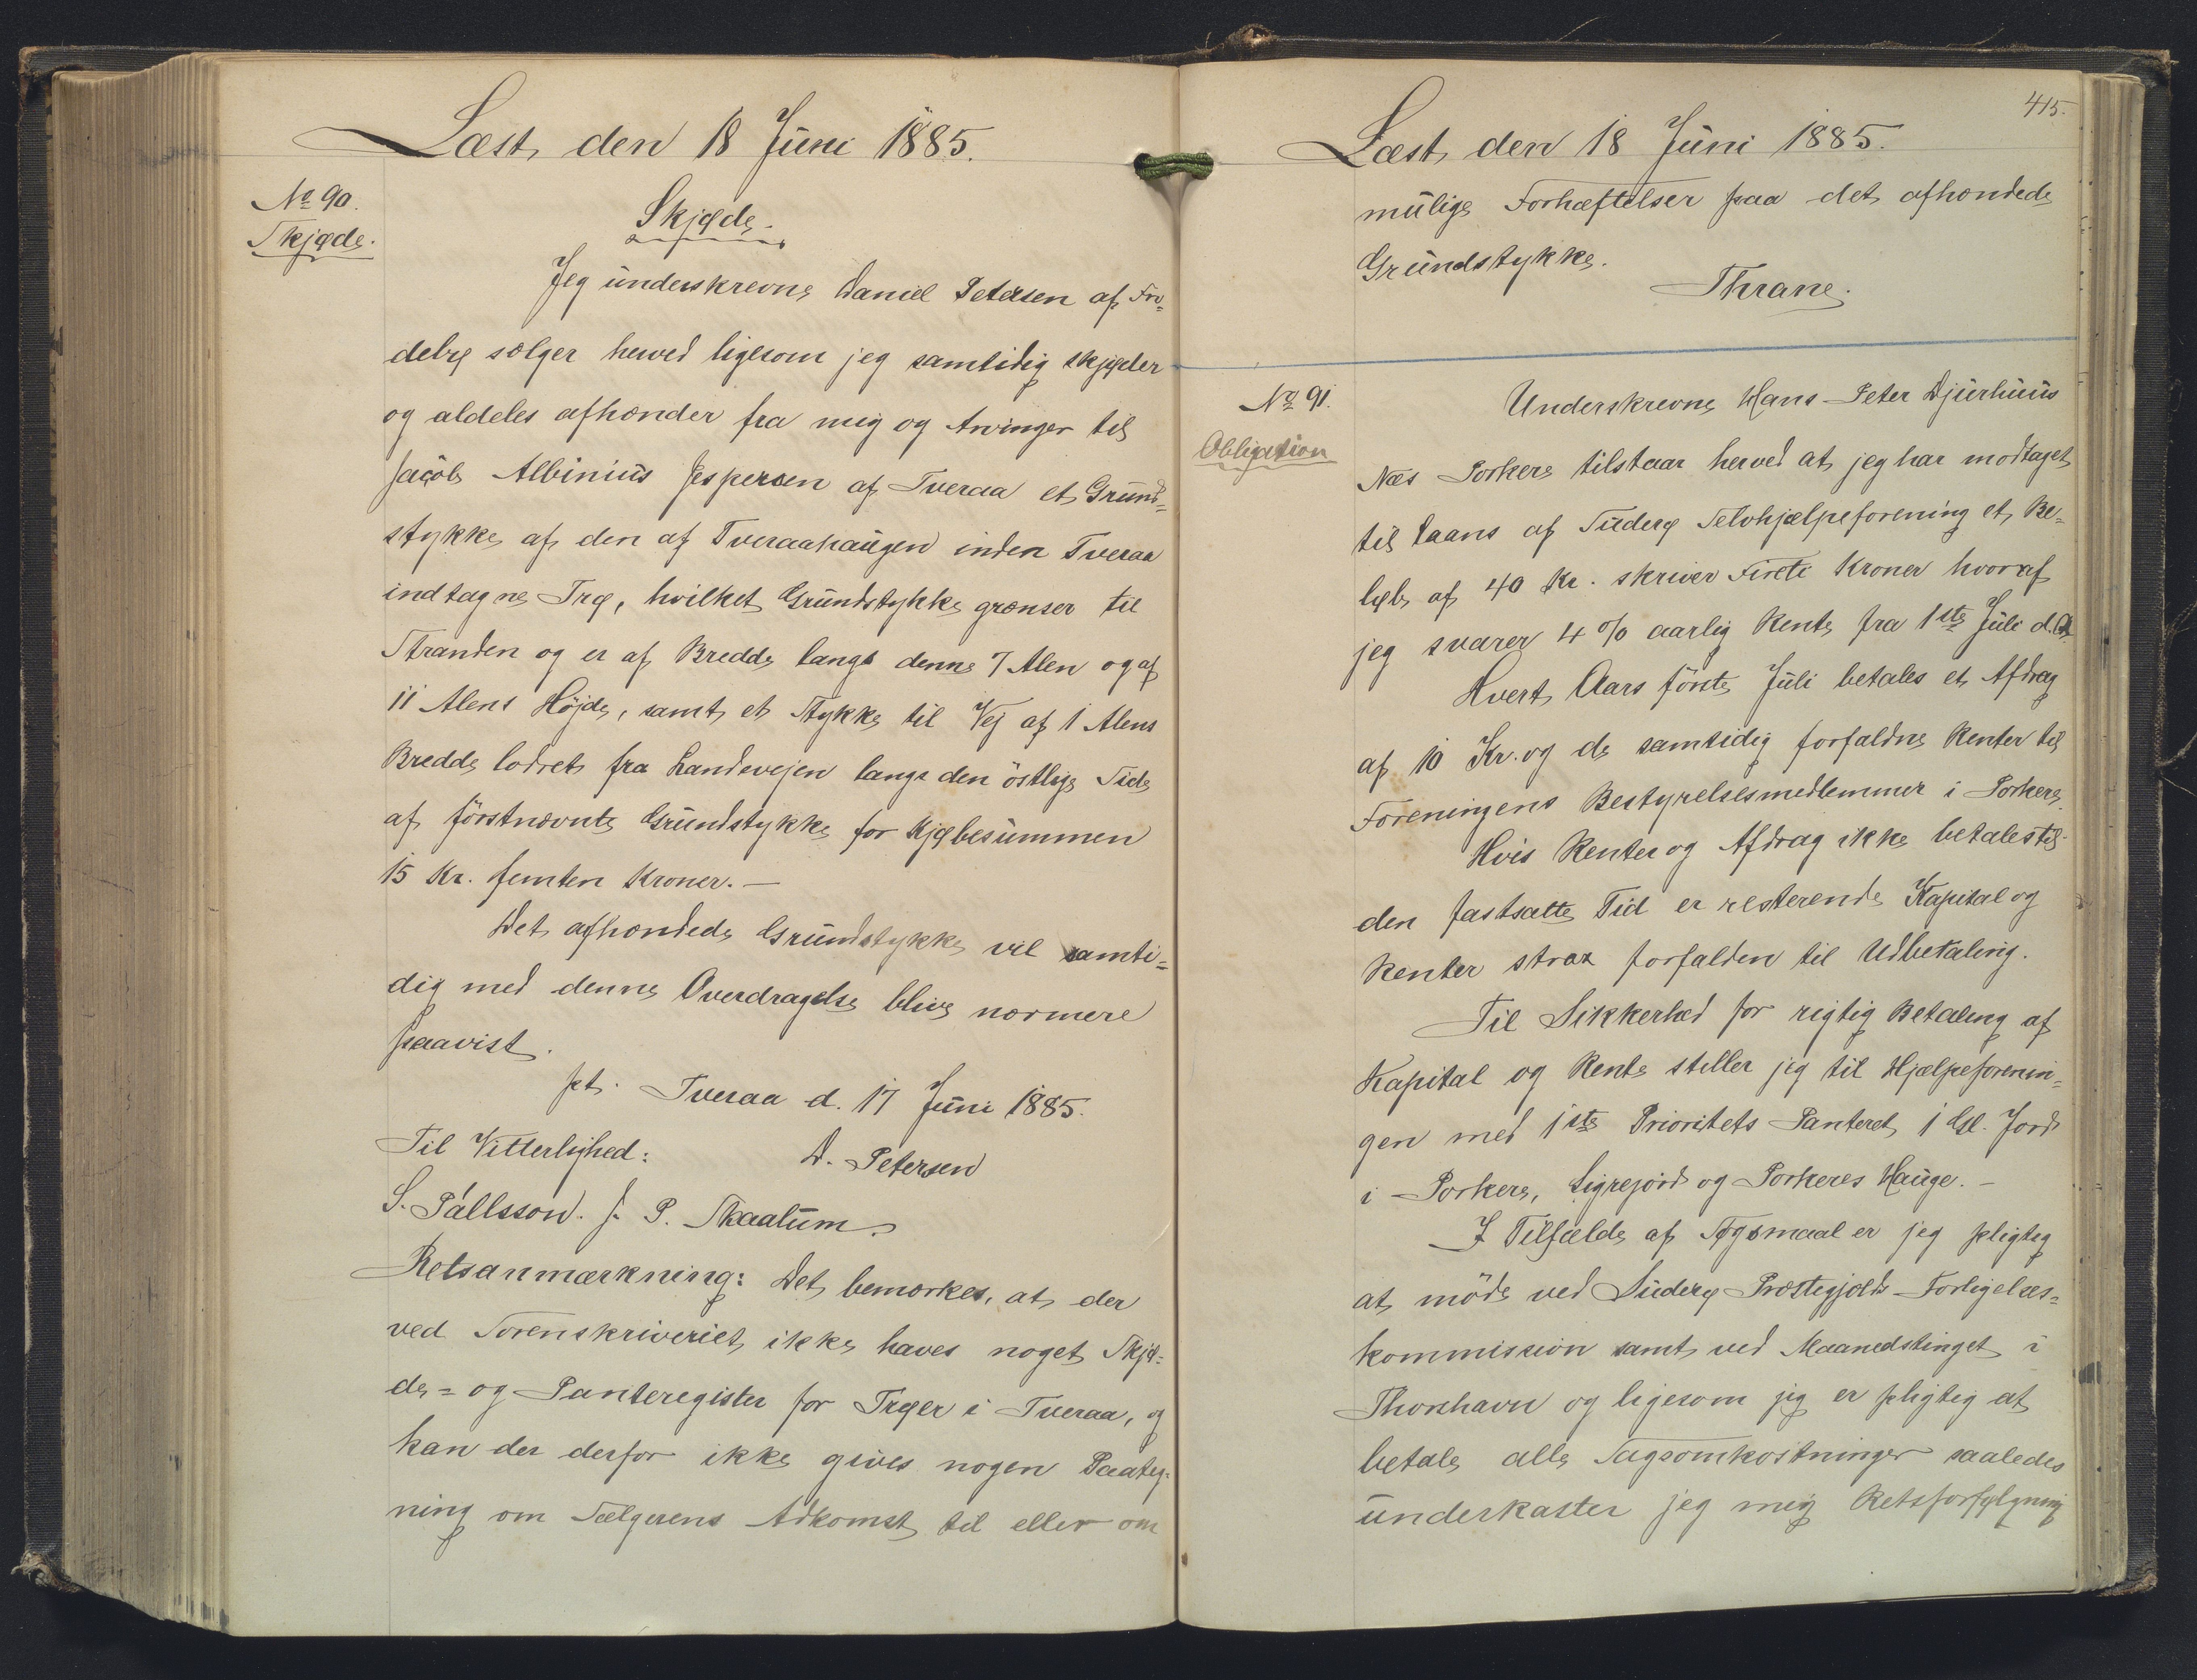 Læst den 18 Juni 1885.
No 90.
Skjøde.
Skjøde.
Jeg underskrevne Daniel Petersen af Fro=
debø sælger herved ligesom jeg samtidig skjøder
og aldeles afhænder fra mig og Arvinger til
Jacob Albinius Jespersen af Tveraa et Grund=
stykke af den af Tveraahaugen inden Tveraa
indtagne Trø, hvilket Grundstykke grænser til
Stranden og er af Bredde langs denne 7 Alen og af
11 Alens Højde, samt et Stykke til Vej af 1 Alens
Bredde lodret fra Landevejen langs den östlige Side
af förstnævnte Grundstykke for Kjøbesummen
15 Kr. femten Kroner. —
Det afhændede Grundstykke vil samti=
dig med denne Overdragelse blive nærmere
paavist.
pt. Tveraa d. 17 Juni 1885.
Til Vitterlighed:
D. Petersen
S. Pállsson. J. P. Skaalum.
Retsanmærkning: Det bemærkes, at der
ved Sorenskriveriet ikke haves noget Skjø=
de= og Panteregister for Trøer i Tveraa, og
kan der derfor ikke gives nogen Paateg=
ning om Sælgerens Adkomst til eller om
415.
Læst den 18 Juni 1885.
mulige Forhæftelser paa det afhændede
Grundstykke.
Thrane.
No 91.
Obligation
Underskrevne Hans Peter Djurhuus
Næs Porkere tilstaar herved at jeg har modtaget
til Laans af Suderø Selvhjælpeforening et Be=
løb af 40 Kr. skriver Firети Kroner hvoraf
jeg svarer 4 % aarlig Rente fra 1ste Juli d. A.
Hvert Aars förste Juli betales et Afdrag
af 10 Kr. og de samtidig forfaldne Renter til
Foreningens Bestyrelsesmedlemmer i Porkere.
Hvis Renter og Afdrag ikke betales til
den fastsatte Tid er resterende Kapital og
Renter strax forfalden til Udbetaling.
Til Sikkerhed for rigtig Betaling af
Kapital og Rente stiller jeg til Hjælpeforenin=
gen med 1ste Prioritets Panteret 1 Gl. Jord
i Porkere, Ligrejord og Porkeres Hauge. —
I Tilfælde af Søgsmaal er jeg pligtig
at möde ved Suderø Præstegjelds Forligelses=
kommission samt ved Maanedstinget i
Thorshavn og ligesom jeg er pligtig at
betale alle Sagsomkostninger saaledes
underkaster jeg mig Retsforfølgning